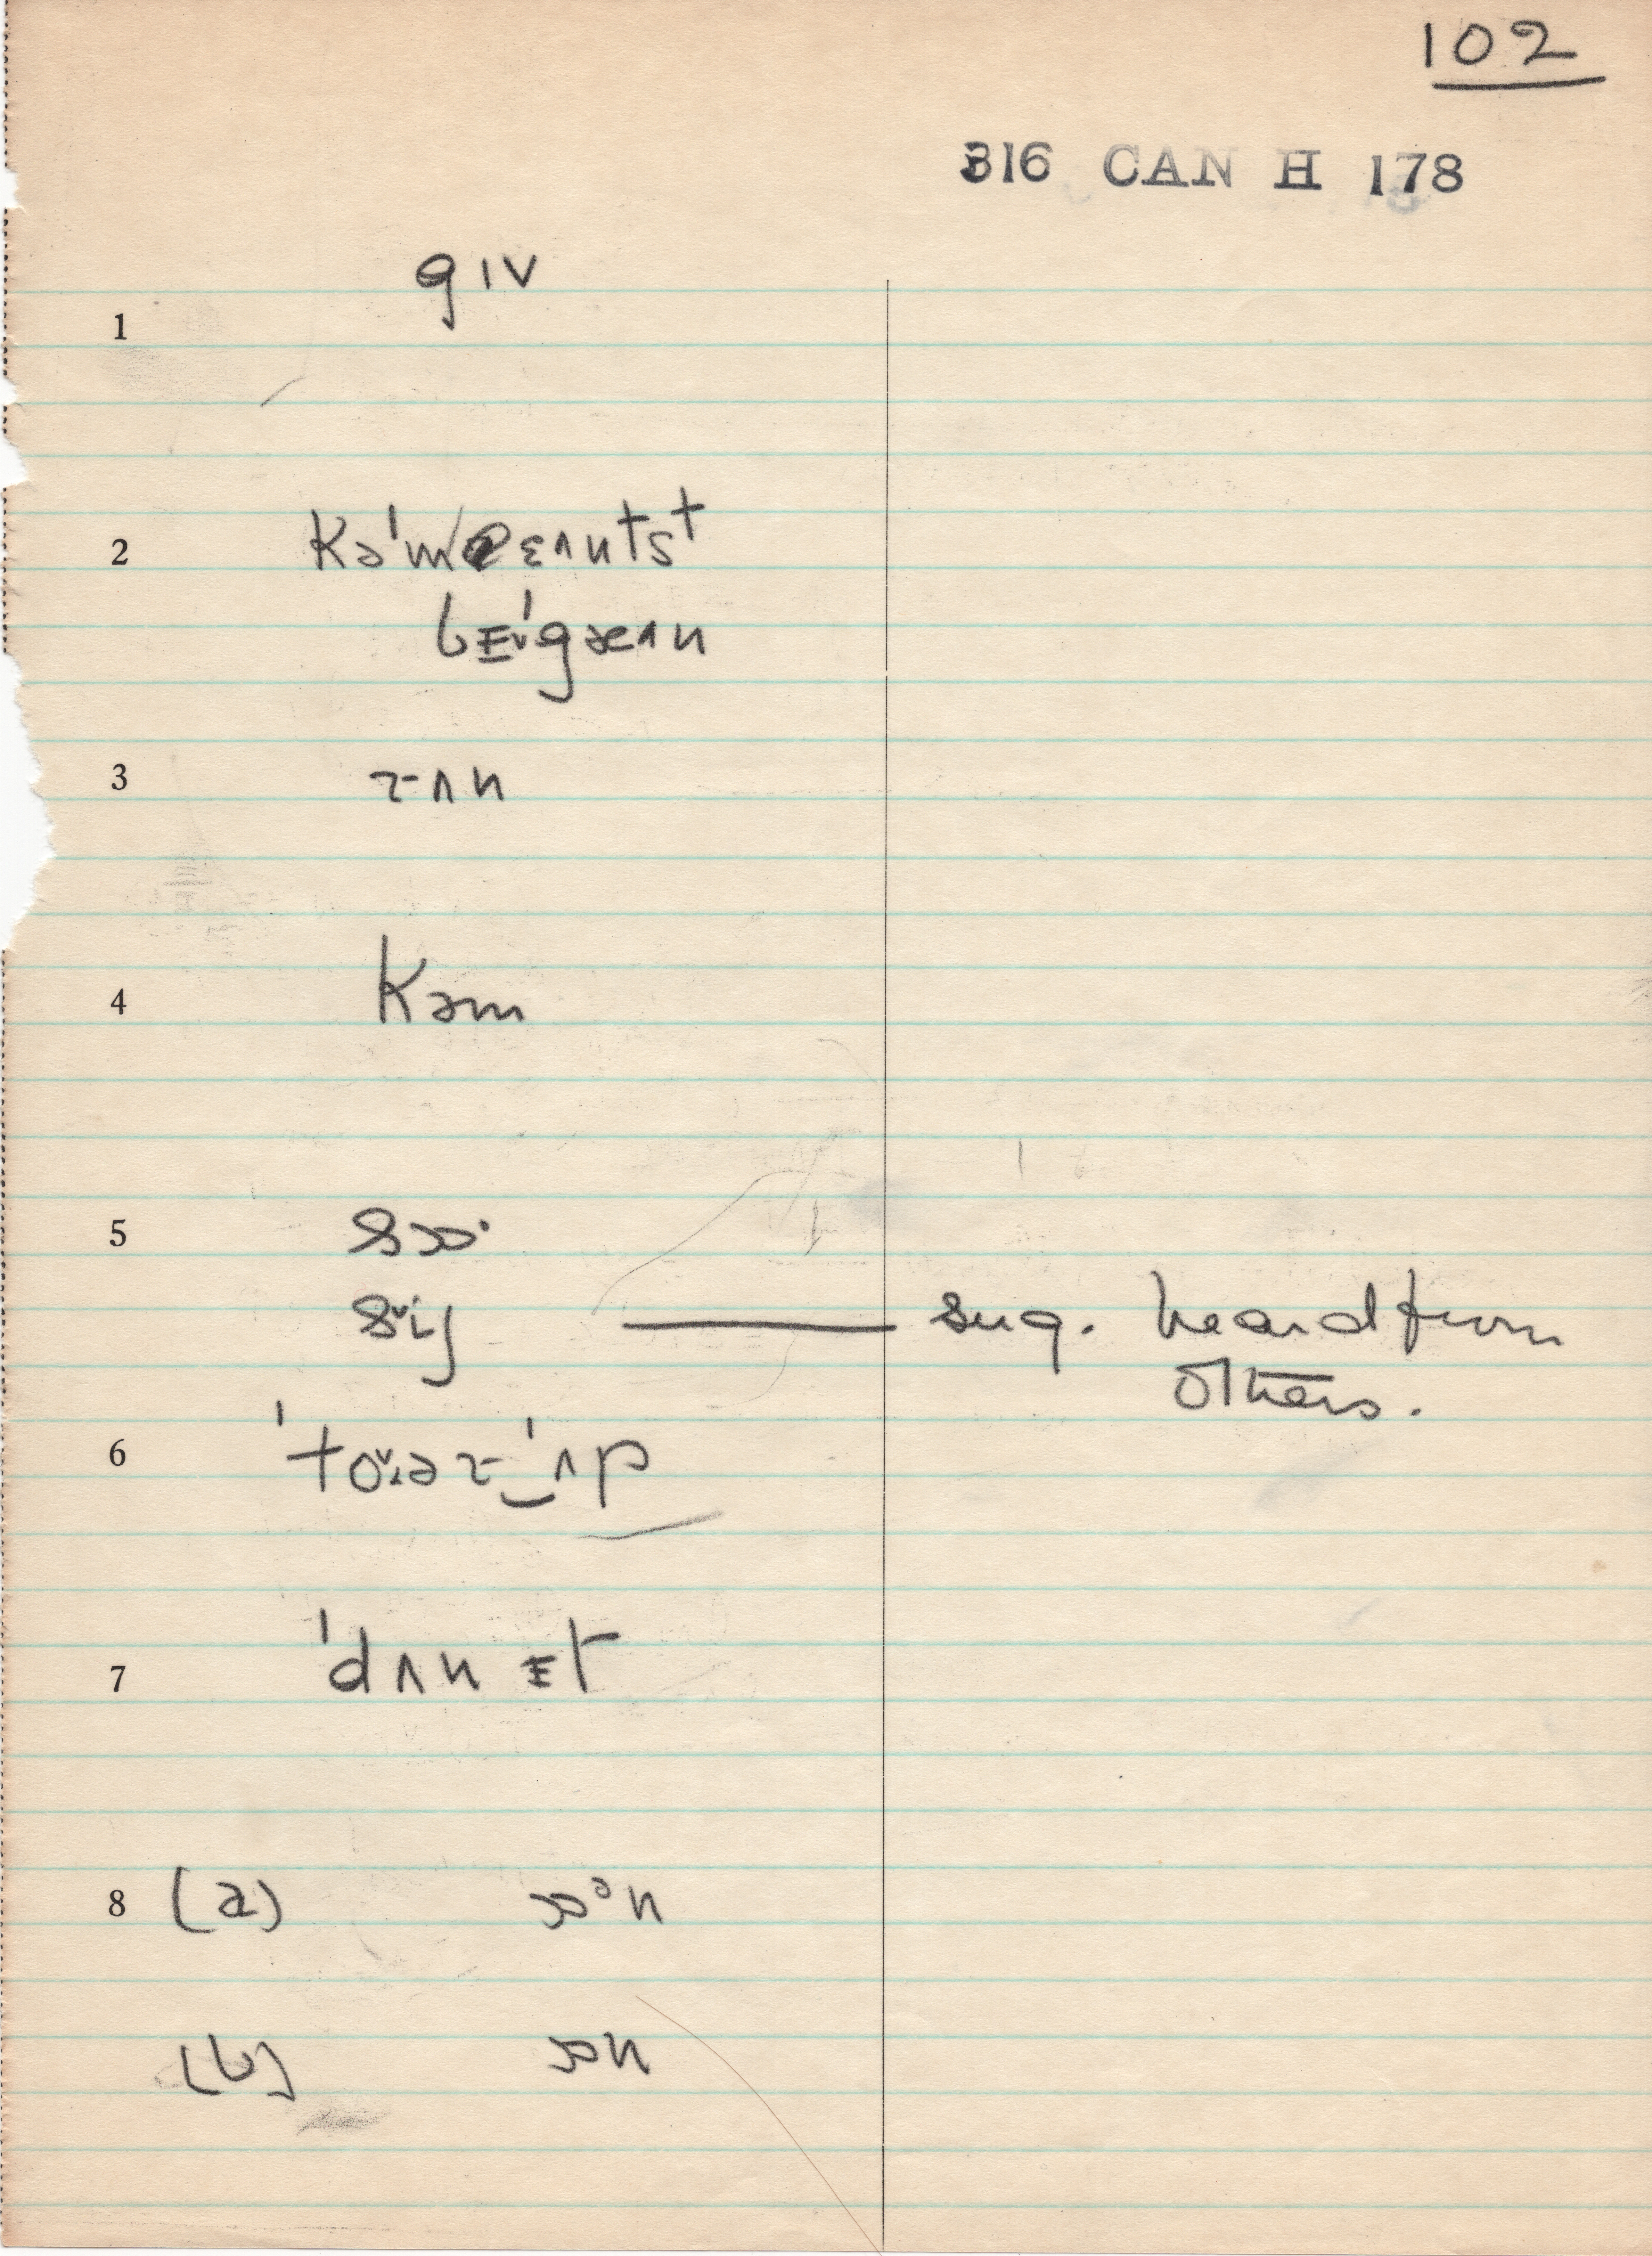 102
316 CAN H 178
1 gɪv
2 kə'mɛʌntst
bᵻ'gæʌn
3 rʌn
4 kəm
5 sɔ·
sij — sug. heard from
others.
6 'toʊər‿'ʌp
7 'dʌn ᵻt
8 (a) ɒᵊn
(b) ɒn